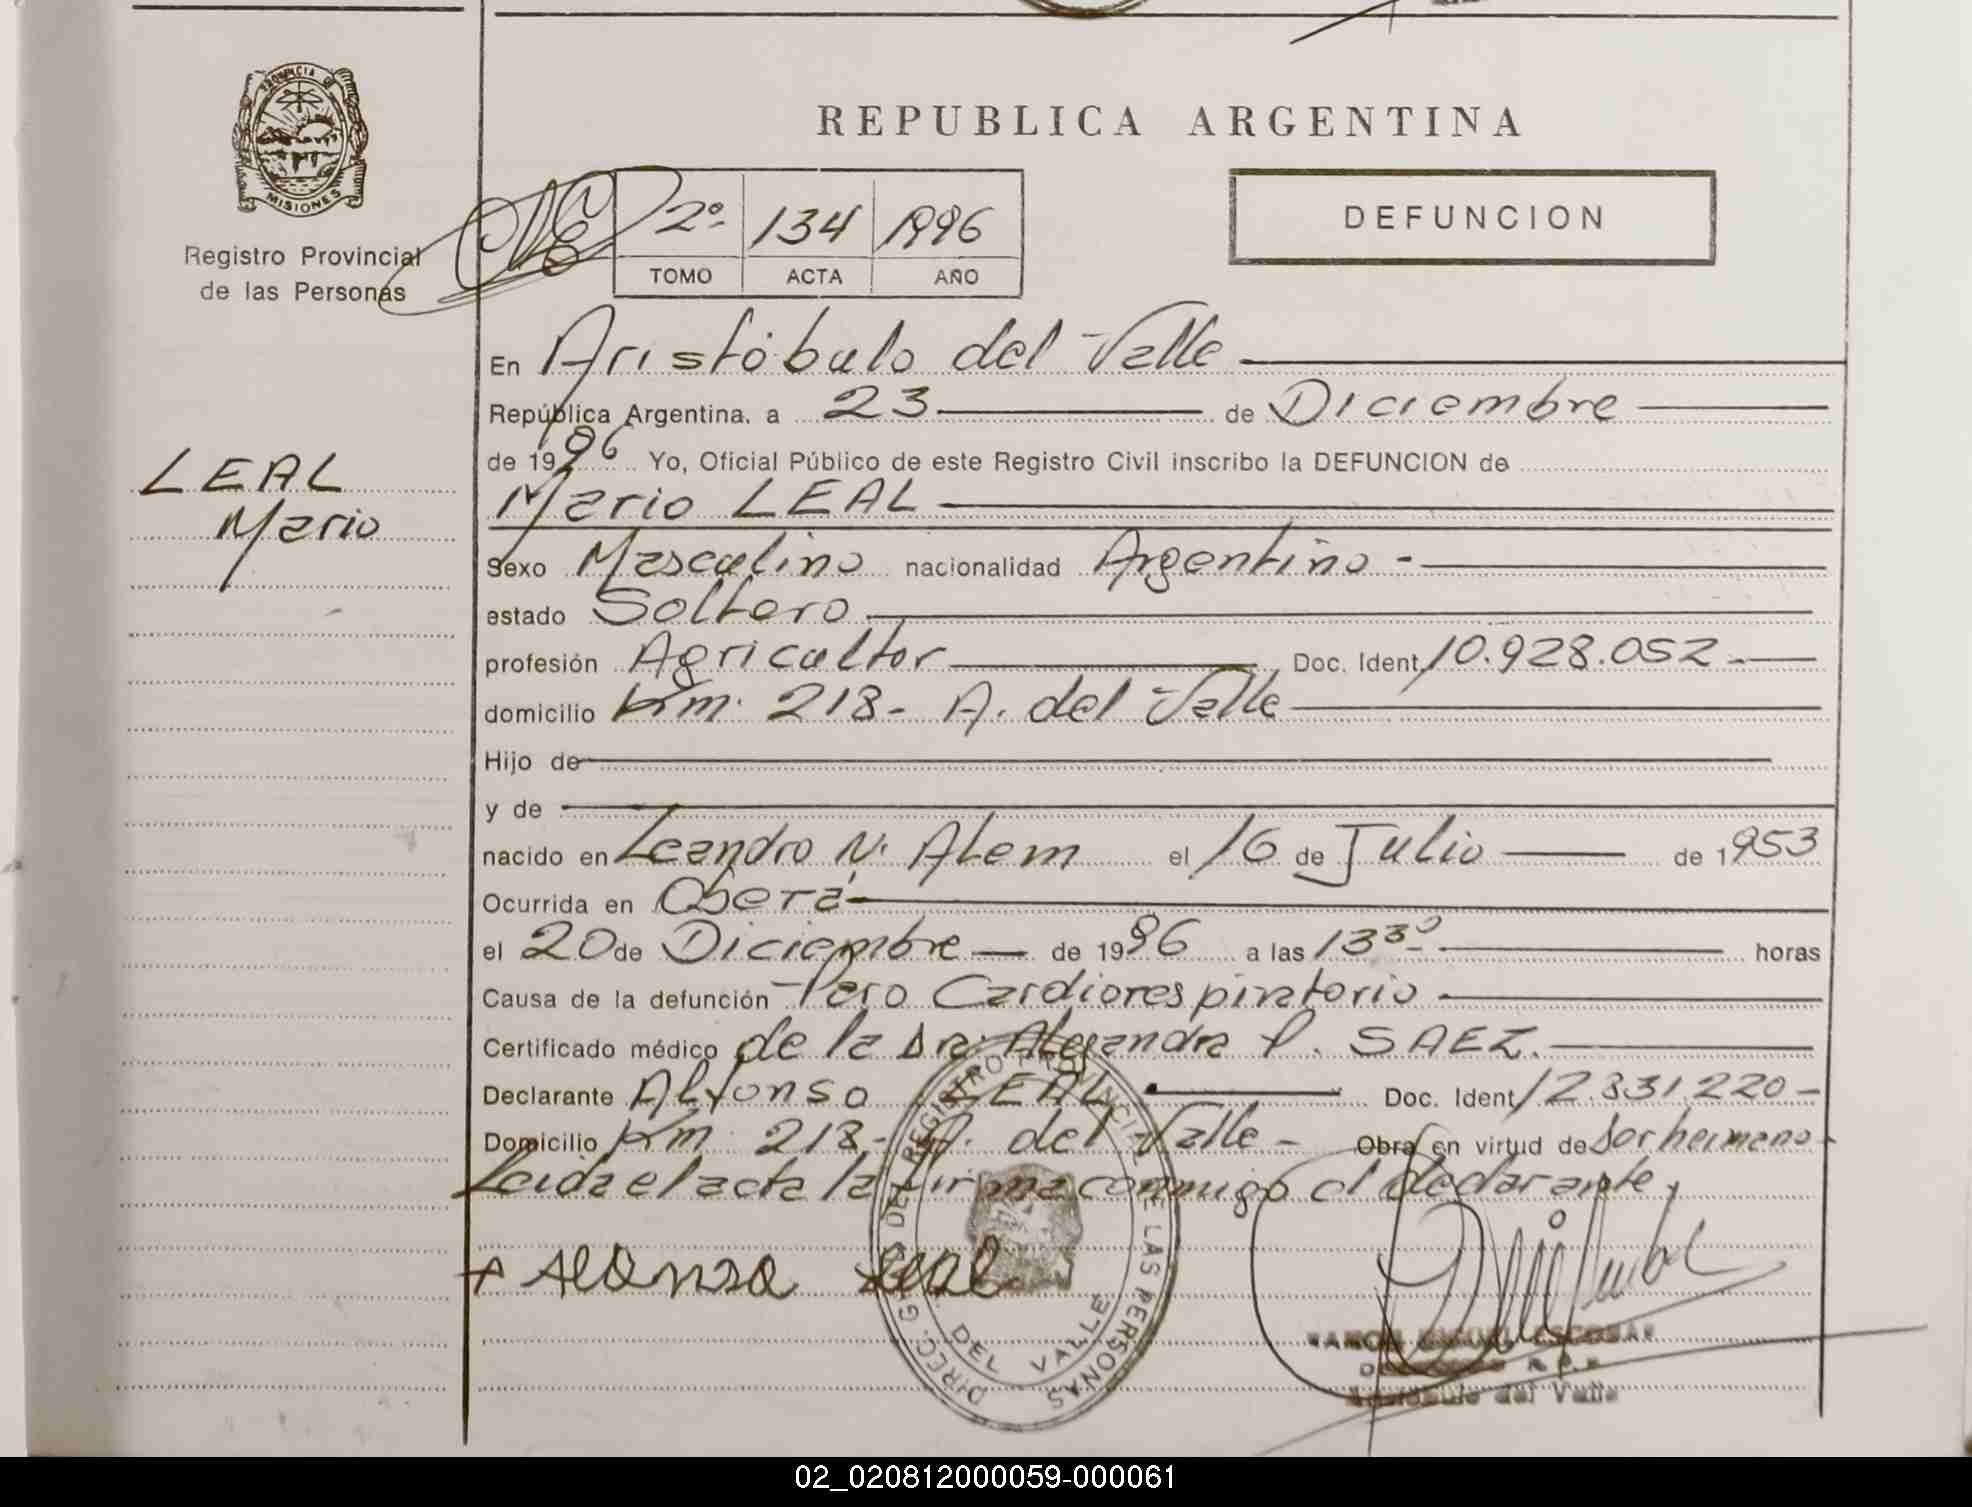 PROVINCIA DE
MISIONES
Registro Provincial
de las Personas
LEAL
Mario
REPUBLICA ARGENTINA
2º 134 1996
TOMO ACTA AÑO
DEFUNCION
En Aristóbulo del Valle
República Argentina, a 23 de Diciembre
de 1996 Yo, Oficial Público de este Registro Civil inscribo la DEFUNCION de
Mario LEAL
Sexo Masculino nacionalidad Argentino -
estado Soltero
profesión Agricultor Doc. Ident. 10.928.052 -
domicilio Km. 218 - A. del Valle
Hijo de
y de
nacido en Leandro N. Alem el 16 de Julio de 1953
Ocurrida en Oberá
el 20 de Diciembre de 1996 a las 13³⁰ horas
Causa de la defunción Paro Cardiorespiratorio
Certificado médico de la Dra. Alejandra P. SAEZ.
Declarante Alfonso LEAL Doc. Ident. 12.831.220 -
Domicilio Km. 218 - A. del Valle - Obra en virtud de ser hermano -
Leida el acta la firma conmigo el declarante,
+ Alonso Leal
DIREC. G DEL REGISTRO PROVINCIAL DE LAS PERSONAS
DEL VALLE
ESCOBAR
Aristóbulo del Valle
02_020812000059-000061